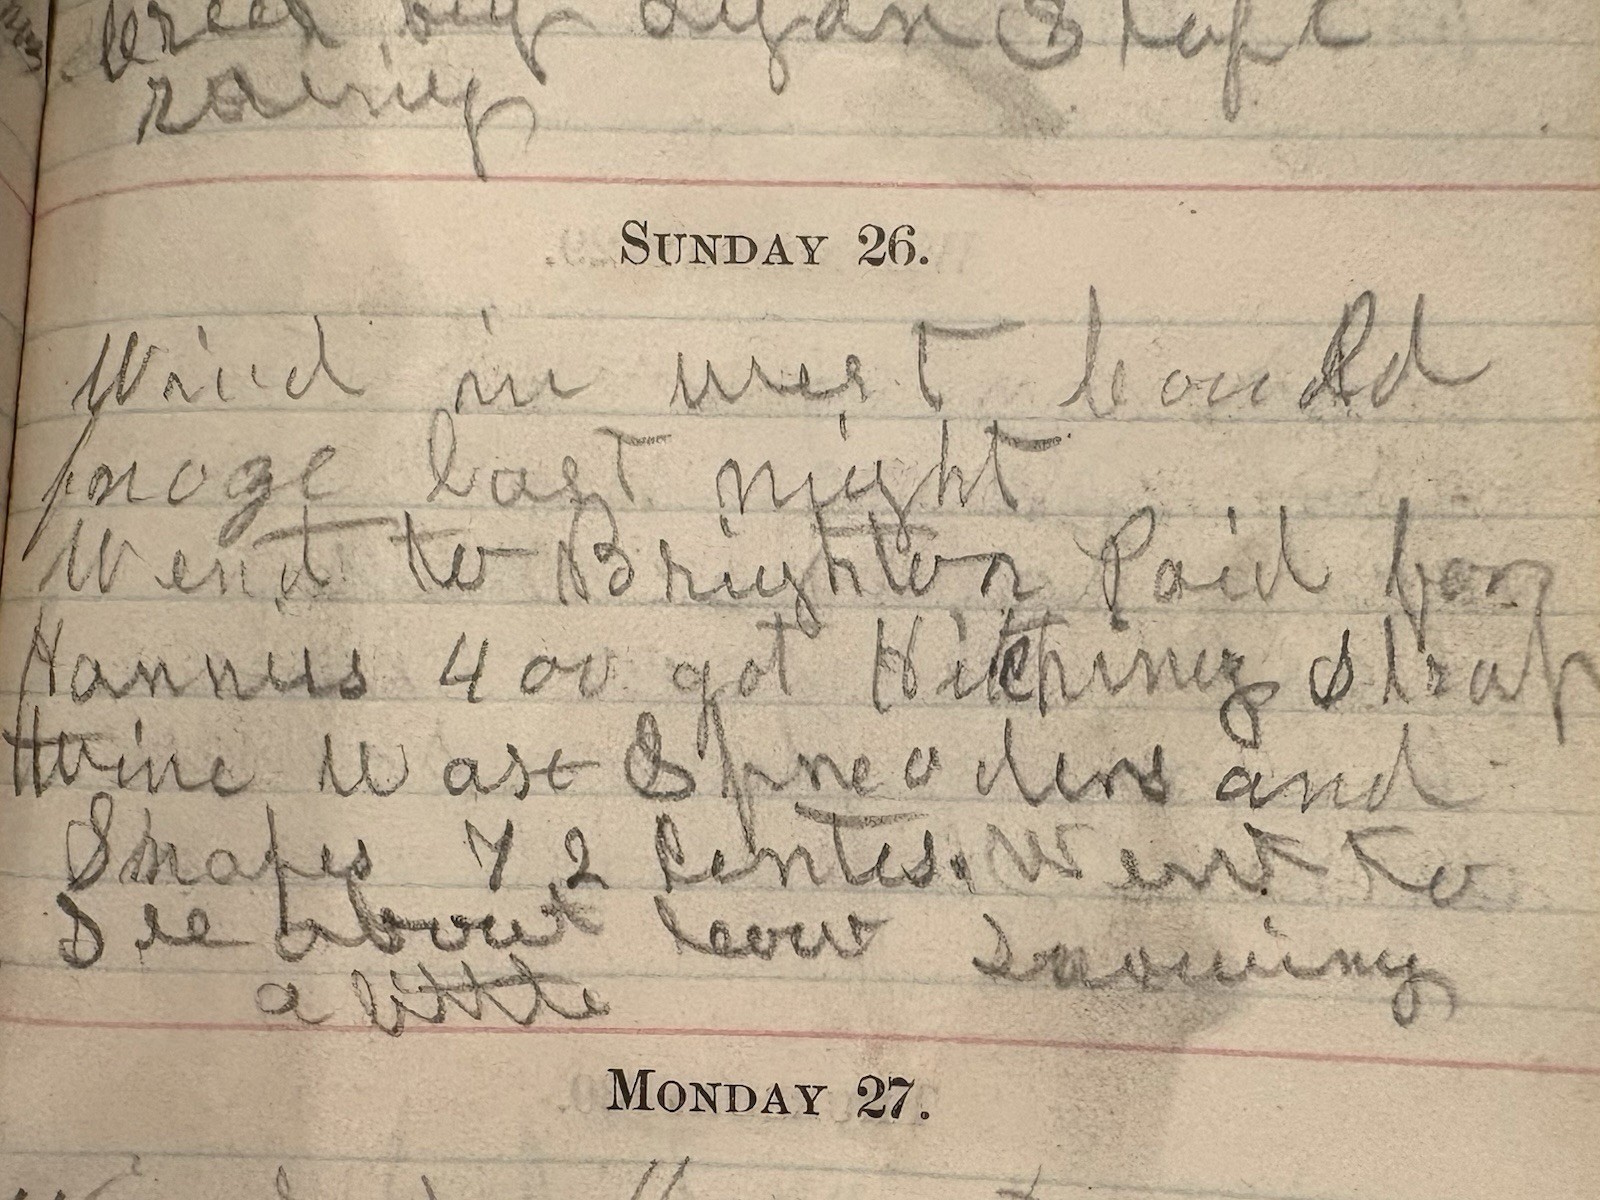 raeing
SUNDAY 26.
Wind in west could
froze last night
Went to Brighton Paid for
Hannus 4 00 got Hitching strap
twine Wast Spreaders and
Snapes 72 Centes. Went to
see about cow Snowing
a little
MONDAY 27.